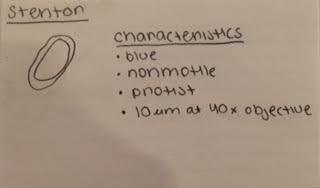 Stenton
characteristics
• blue
• nonmotile
• protist
• 10 um at 40x objective